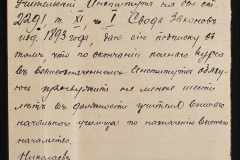 Учительскаго Института на осн. ст.
2291, т. XI, ч. I Свода Законовъ
изд. 1893 года, даю сію подписку въ
томъ, что по окончаніи полнаго курса
въ вышеозначенномъ Институтѣ обязу-
юсь прослужить не менѣе шести
лѣтъ въ должности учителя высшаго
начальнаго училища по назначенію высшаго
начальства.
Николаевъ